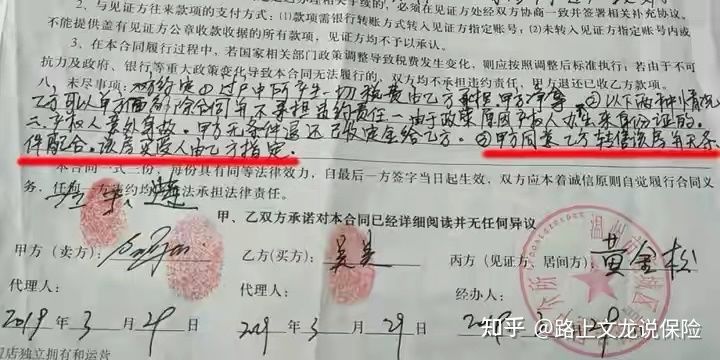 2、与见证方往来款项的支付方式：⑴款项需银行转账方式转入见证方指定账号，⑵未转入见证方指定账号内或
不能提供盖有见证方公章收款收据的所有款项，见证方均不予以承认。
3、在本合同履行过程中，若国家相关部门政策调整导致税费发生变化，则应按照调整后标准执行；若由于不可
抗力及政府、银行等重大政策变化导致本合同无法履行的，双方均不承担违约责任，甲方退还已收乙方款项。
八、未尽事项：双方约定①过户中所产生一切税费由乙方承担，甲方净等。②以下两种情况
乙方可以单方面解除合同并不承担违约责任一由于政策原因
二产权人意外身故。甲方无条件退还已收定金给乙方。③甲方同意乙方转售该房并无条
件配合。该房买受人由乙方指定。
本合同一式三份，每份具有同等法律效力，自最后一方签字当日起生效，双方应本着诚信原则自觉履行合同义
务，任何一方违约均 法承担法律责任。
甲、乙双方承诺对本合同已经详细阅读并无任何异议
甲方（卖方）： 乙方(买方)： 吴 丙方（见证方、居间方）：黄金松
代理人： 代理人： 经办人：
2019 年 3 月 29 日 2019 年 3 月 29 日
店独立拥有和运营
知乎 @路上文龙说保险